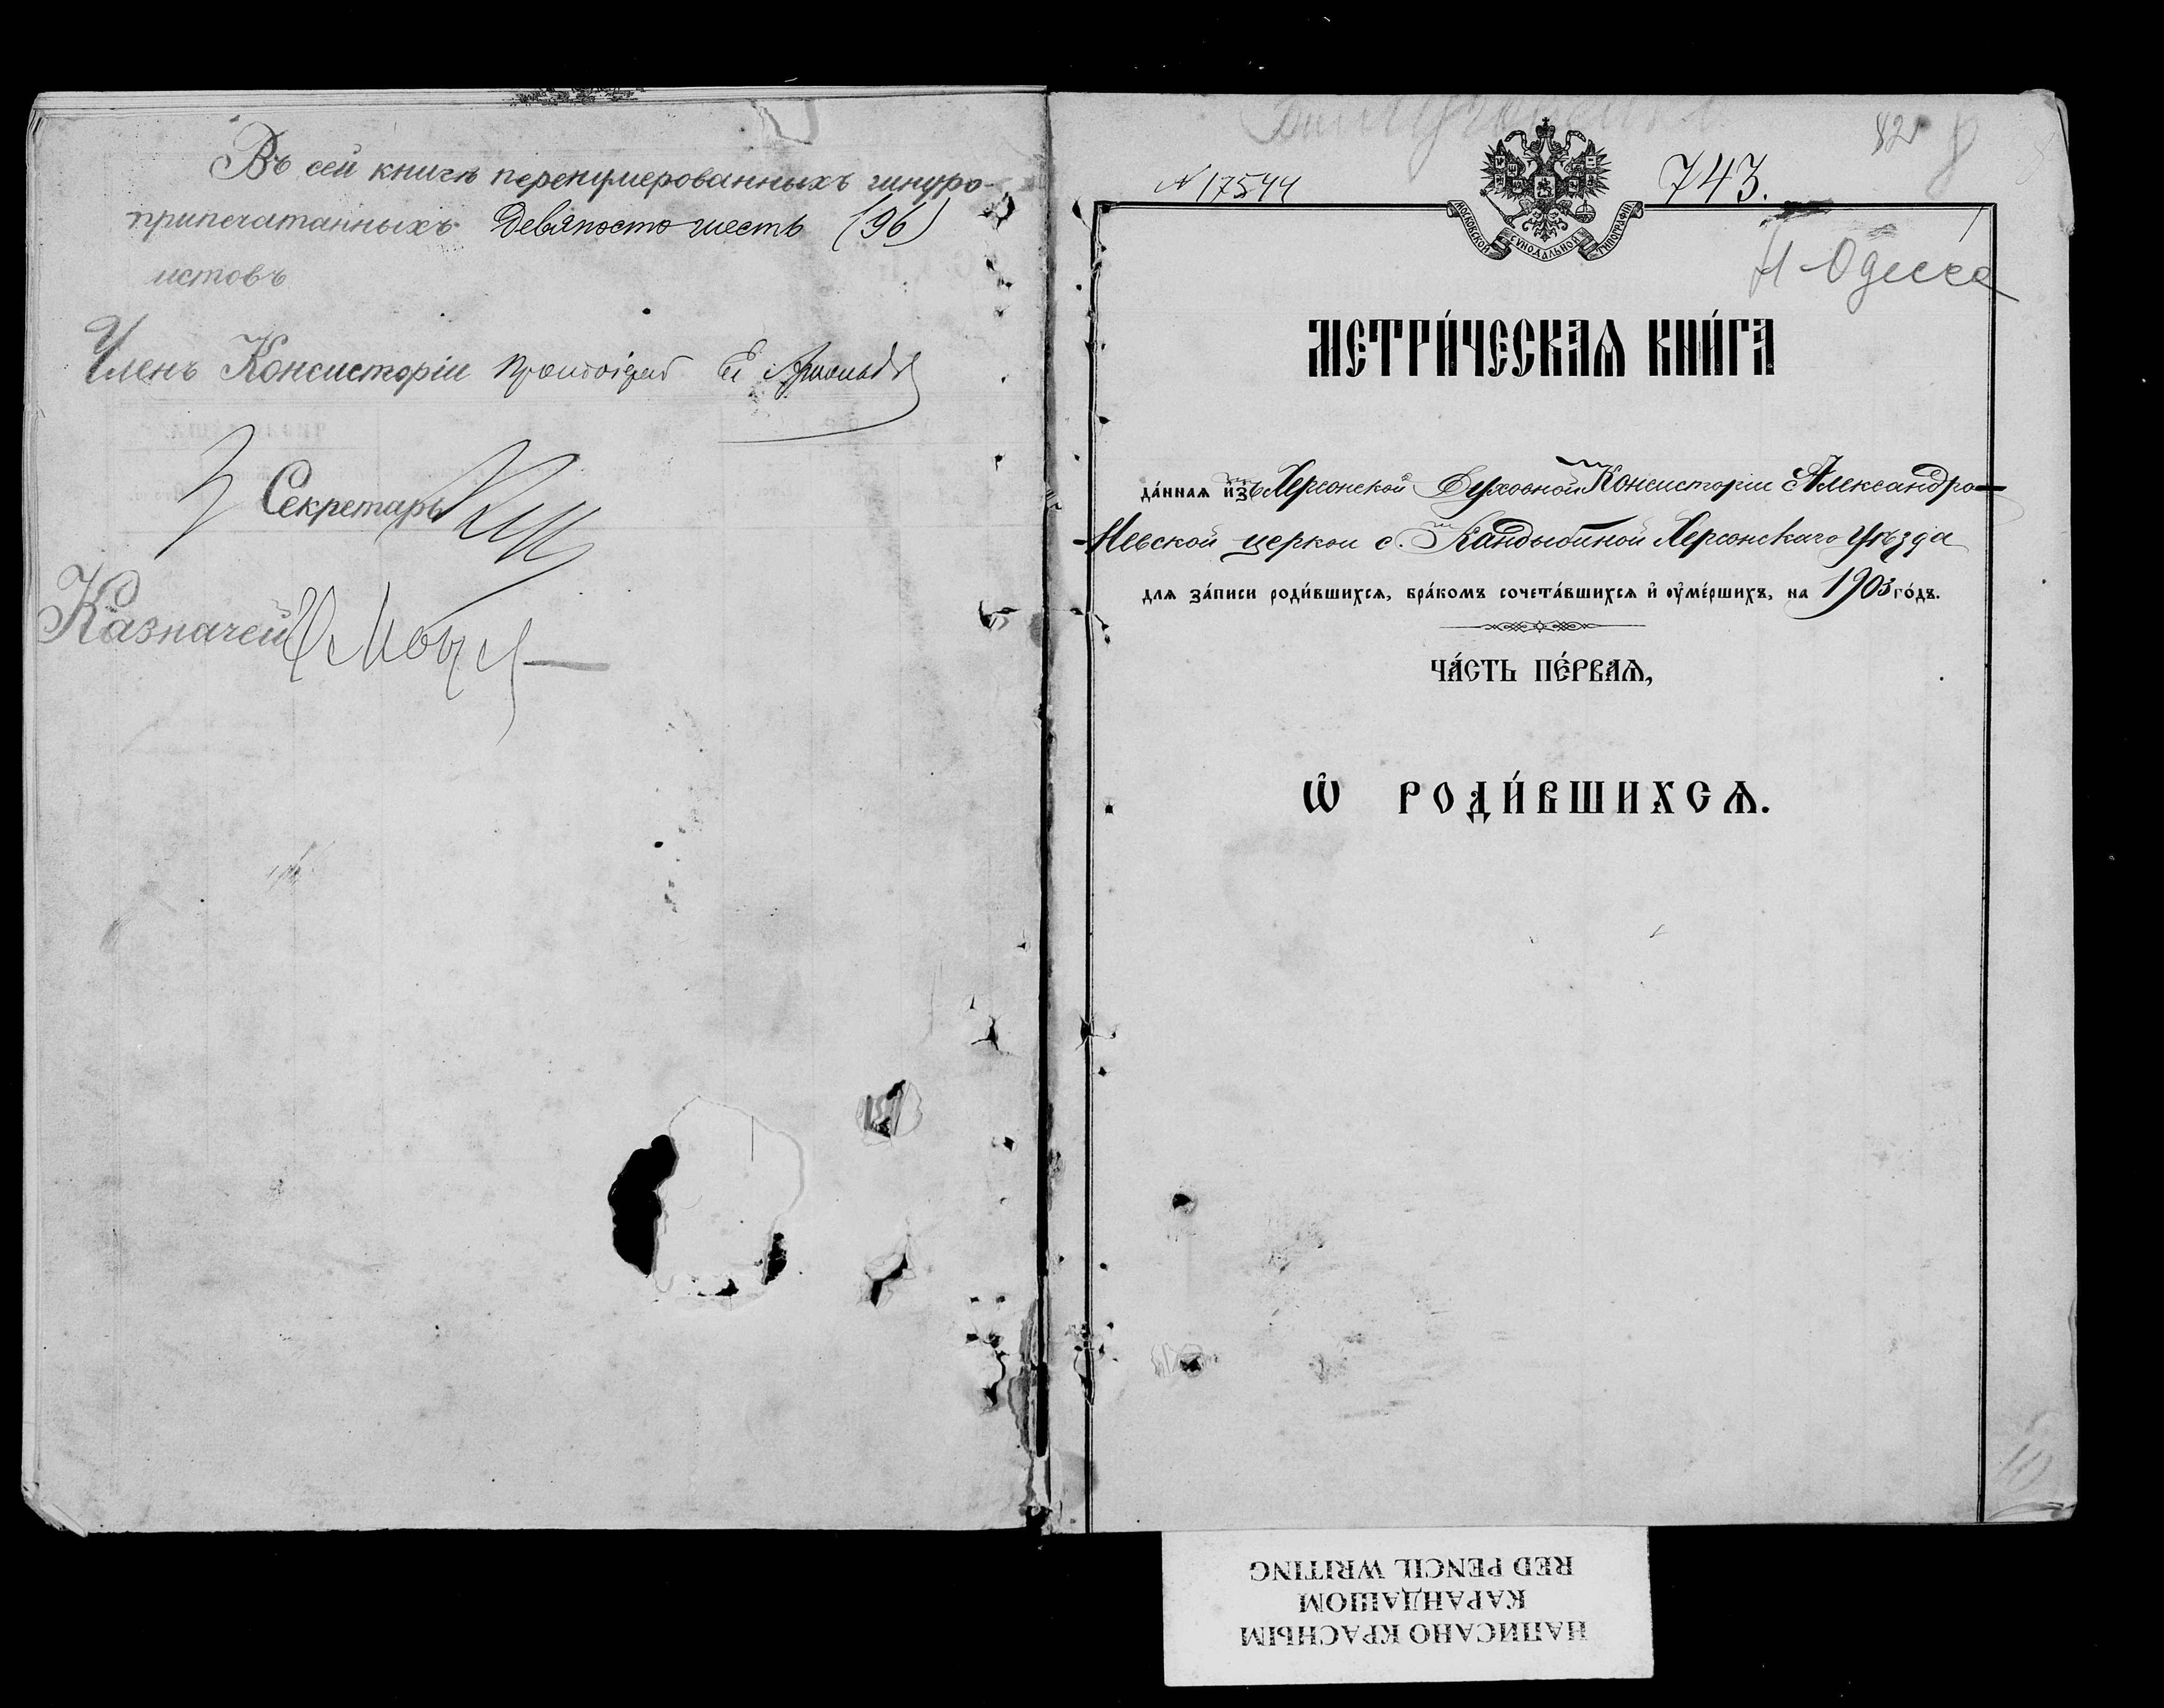 Въ сей книгѣ перенумерованныхъ шнуро-
припечатанныхъ Девяносто шесть (96)
истовъ
Членъ Консисторіи Протоіерей
Секретарь
Казначей
82
№ 17544
743.
МОСКОВСКОЙ СѴНОДАЛЬНОЙ ТИПОГРАФІИ
Н-Одесса
МЕТРИ́ЧЕСКАѦ КНИ́ГА
да́ннаѧ и҆зъ Херсонской Духовной Консисторіи Александро-
Невской церкви с. Кандыбиной Херсонскаго уѣзда
для за́писи роди́вшихсѧ, бра́комъ сочета́вшихсѧ и҆ ᲂу҆ме́ршихъ, на 1903 го́дъ.
ЧА́СТЬ ПЕ́РВАѦ,
Ѡ҆ РОДИ́ВШИХСѦ.
НАПИСАНО КРАСНЫМ
КАРАНДАШОМ
RED PENCIL WRITING